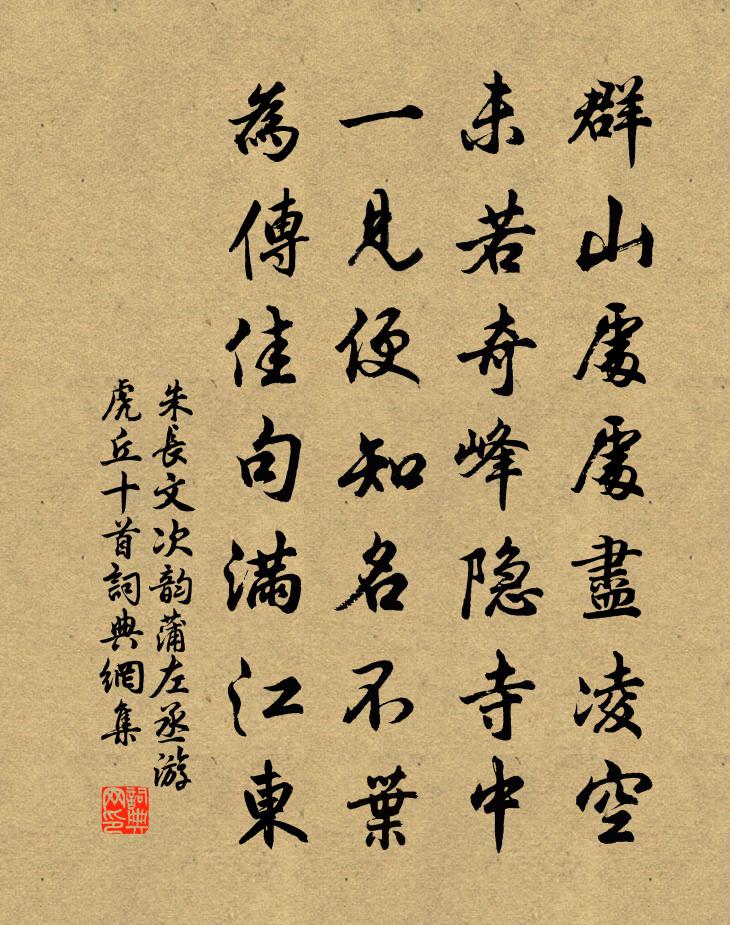 群山處處盡凌空
未若奇峰隐寺中
一見便知名不葉
為傳佳句満江東
朱長文次韵蒲左丞游
虎丘十首詞典網集
詞典
网印